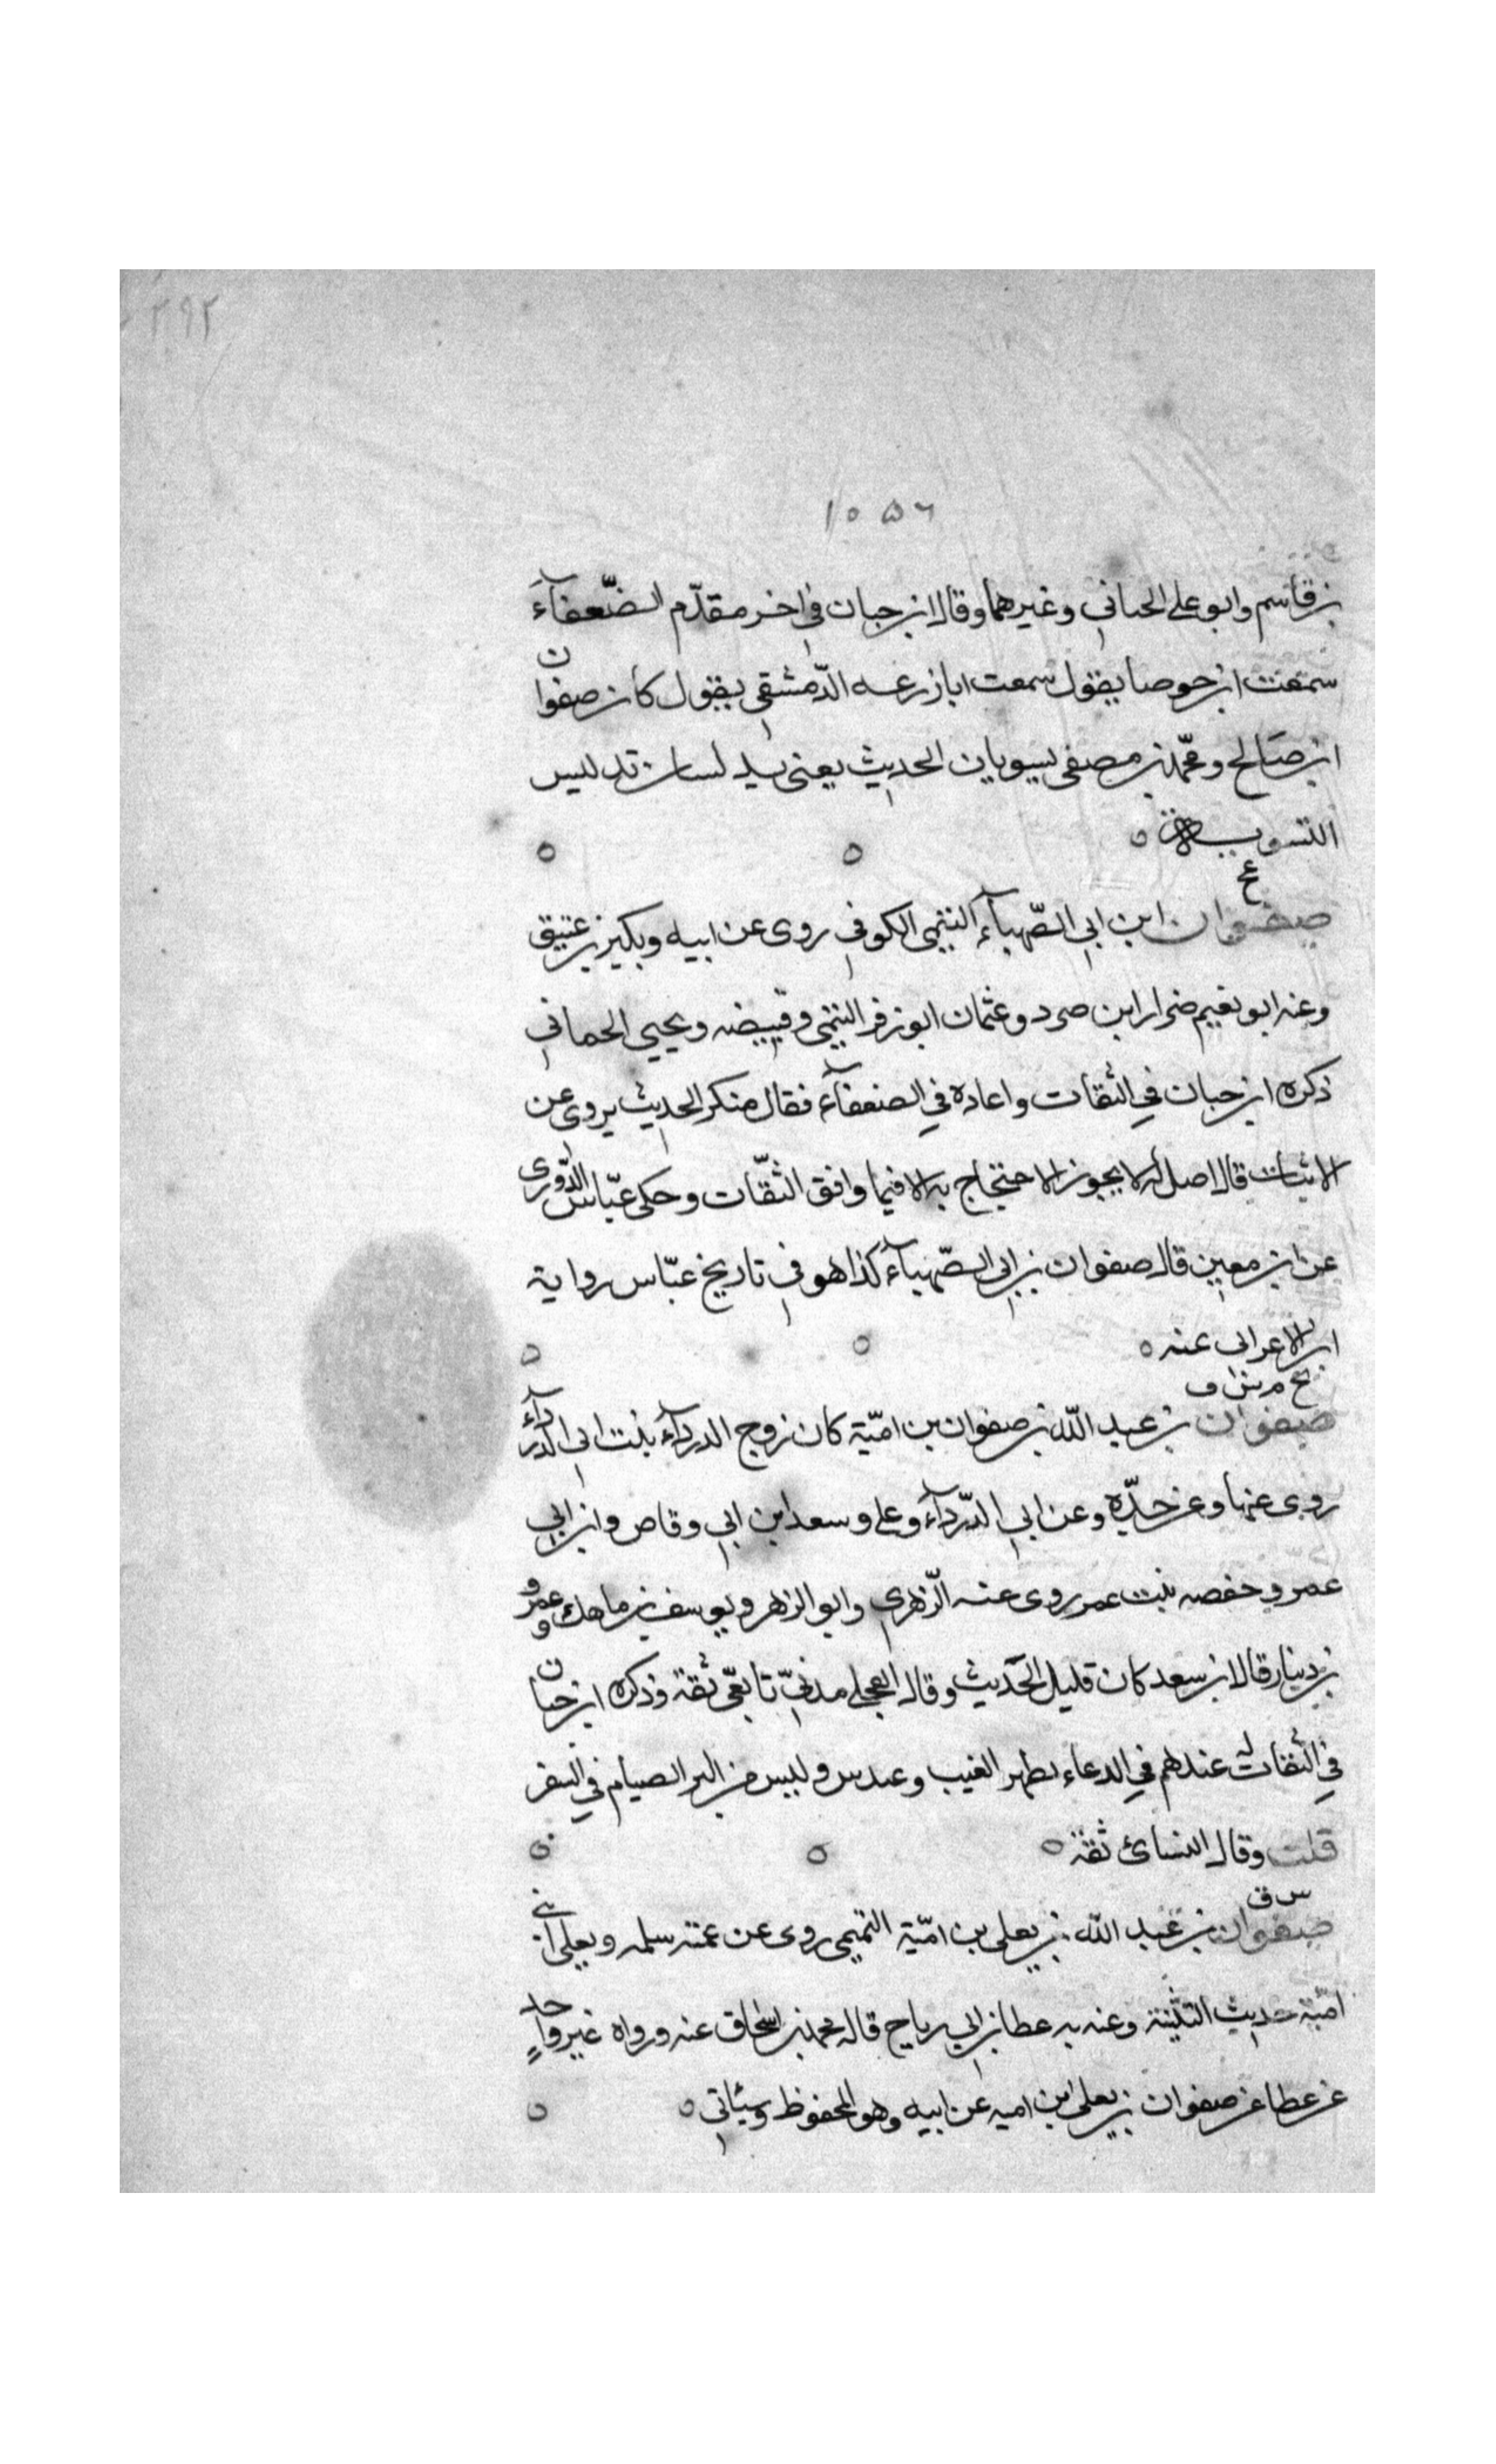 ٢٩٢
١٠٥٦
بن قاسم وابو على الحبانى وغيرهما وقال ابن حبان فى اخر مقدّم الضّعفآء
سمعت ابن حوصا يقول سمعت ابا زرعه الدّمشقى يقول كان صفوان
ابن صَالح ومحمّد بن مصفى يسويان الحديث يعنى يدلسان تدليس
التسوية
خ
صفوان ابن ابى الصّهبآء التيمى الكوفى روى عن ابيه وبكير بن عتيق
وعنه ابو نعيم ضرار ابن صرد وعثمان ابو زفر التيمى وقبيضه ويحيى الحمانى
ذكره ابن حبان فى الثقات واعاده فى الضعفآء فقال منكر الحديث يروى عن
الاثبات قال اصل له لا يجوز الاحتجاج به الا فيما وافق الثقّات وحكى عبّاس الدّورى
عن ابن معين قال صفوان بن ابى الصّهبآء كذا هو فى تاريخ عبّاس رواية
ابن الاعرابى عنه
بخ م س ق
صفوان بن عبد الله بن صفوان بن اميّة كان زوج الدردآء بنت ابى الدردآء
روى عنها وعن جدّه وعن ابى الدّردآء وعلى وسعد ابن ابى وقاص وابن ابى
عمر وحفصه بنت عمر روى عنه الزّهرى وابو الزهر ويوسف بن ماهك وعمرو
بن دينار قال ابن سعد كان قليل الحَديث وقال العجلى مدنىّ تابعىّ ثقة وذكره ابن حبان
فى الثقات له عندهم فى الدعاء بظهر الغيب وعند س وليس من البر الصيام فى السفر
قلت وقال النسائ ثقة
س ق
صفوان بن عبد الله بن يعلى بن اميّة التميمى روى عن عمته سلمه ويعلى ابنى
اميّة حديث الثنية وعنه به عطا بن ابى رباح قاله محمد بن اسحاق عنه ورواه غير واحدٍ
عن عطا عن صفوان بن يعلى ابن اميه عن ابيه وهو المحفوظ وسيئاتى